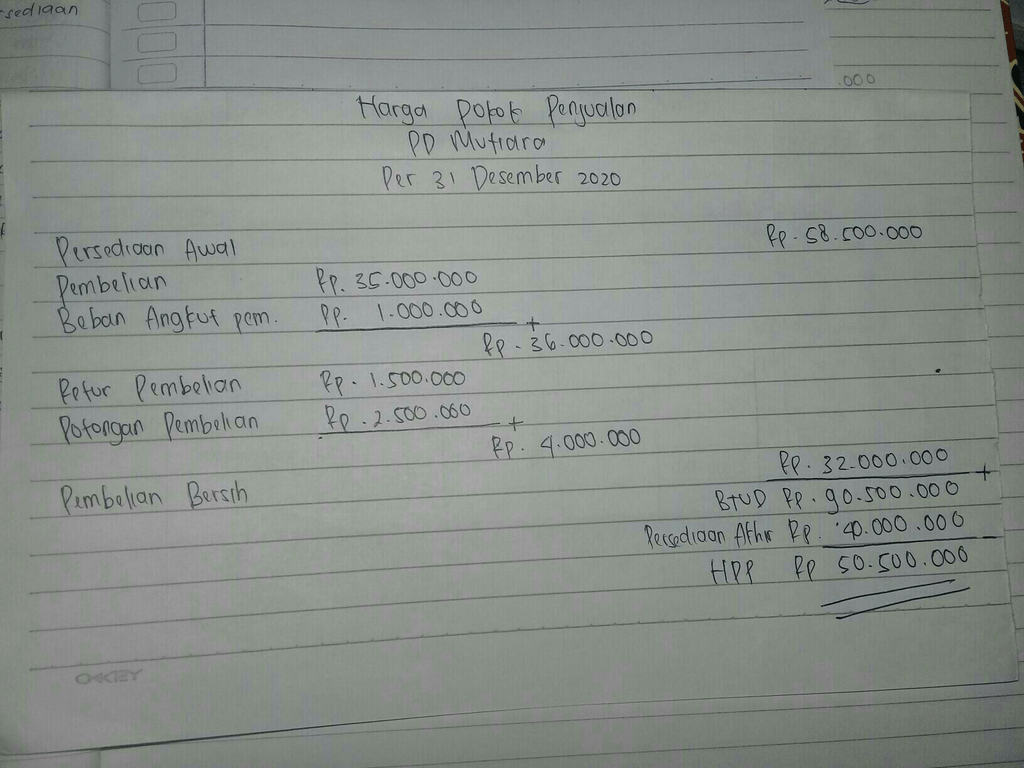 sediaan
.000
Harga Pokok Penjualan
PD Mutiara
Per 31 Desember 2020
Persediaan Awal Rp. 58.500.000
Pembelian Rp. 35.000.000
Beban Angkut pem. Rp. 1.000.000 +
Rp. 36.000.000
Retur Pembelian Rp. 1.500.000
Potongan Pembelian Rp. 2.500.000 +
Rp. 4.000.000
Rp. 32.000.000 +
Pembelian Bersih
BTUD Rp. 90.500.000
Persediaan Akhir Rp. 40.000.000 -
HPP Rp 50.500.000
OKEY